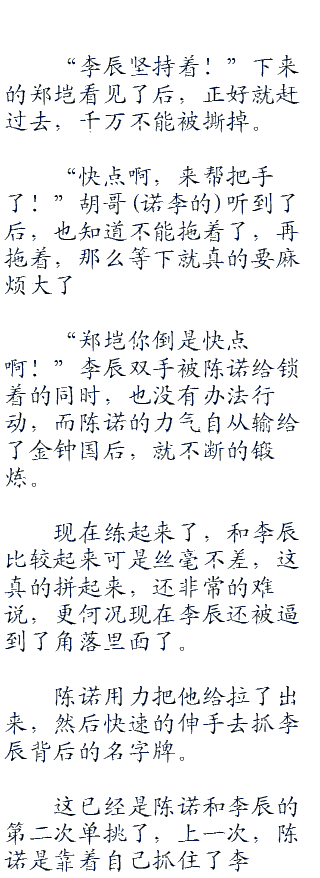 “李辰坚持着！”下来
的郑垲看见了后，正好就赶
过去，千万不能被撕掉。
“快点啊，来帮把手
了！”胡哥(诺李的)听到了
后，也知道不能拖着了，再
拖着，那么等下就真的要麻
烦大了
“郑垲你倒是快点
啊！”李辰双手被陈诺给锁
着的同时，也没有办法行
动，而陈诺的力气自从输给
了金钟国后，就不断的锻
炼。
现在练起来了，和李辰
比较起来可是丝毫不差，这
真的拼起来，还非常的难
说，更何况现在李辰还被逼
到了角落里面了。
陈诺用力把他给拉了出
来，然后快速的伸手去抓李
辰背后的名字牌。
这已经是陈诺和李辰的
第二次单挑了，上一次，陈
诺是靠着自己抓住了李